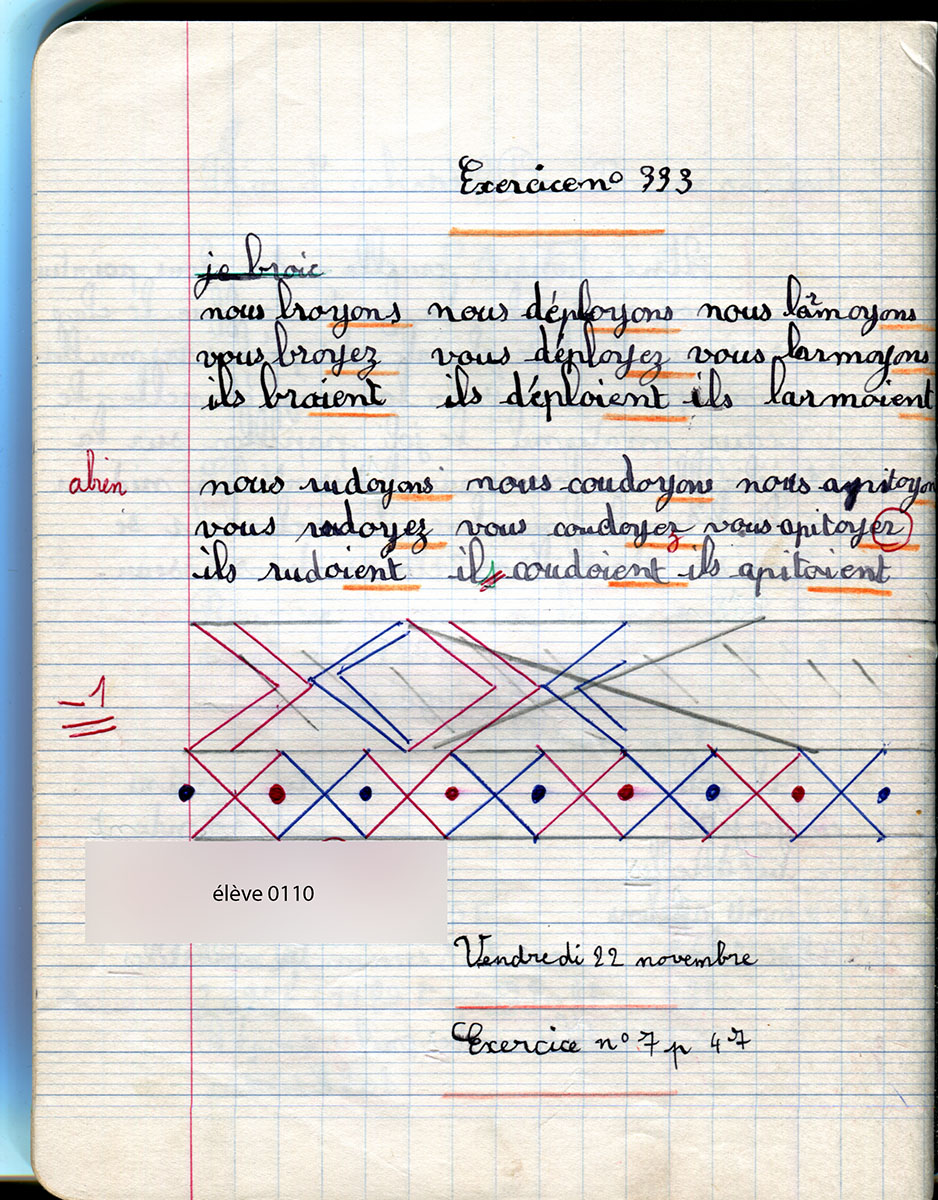 Exercice no 333
je broie
nous broyons nous déployons nous larmoyons
vous broyez vous déployez vous larmoyons
ils broient ils déploient ils larmoient
abien nous rudoyons nous coudoyons nous apitoyon
vous rudoyez vous coudoyez vous apitoyez
ils rudoient ils coudoient ils apitoient
-1
élève 0110
Vendredi 22 novembre
Exercice no 7 p 47